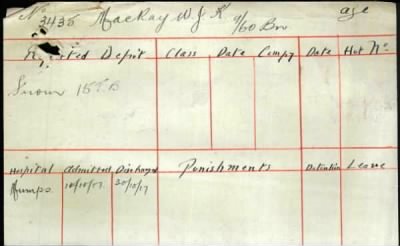 No 3435 MacKay W.J.K 9/60 Bn age
Reported Depot Class Date Compy Date Hut No
15 T.B
Hospital Admitted Discharged Punishments Detention Leave
Mumps 10/10/17 30/10/17